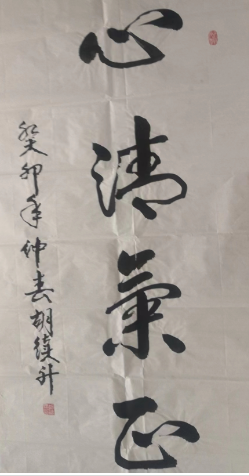 心清氣正
癸卯年仲春胡續升